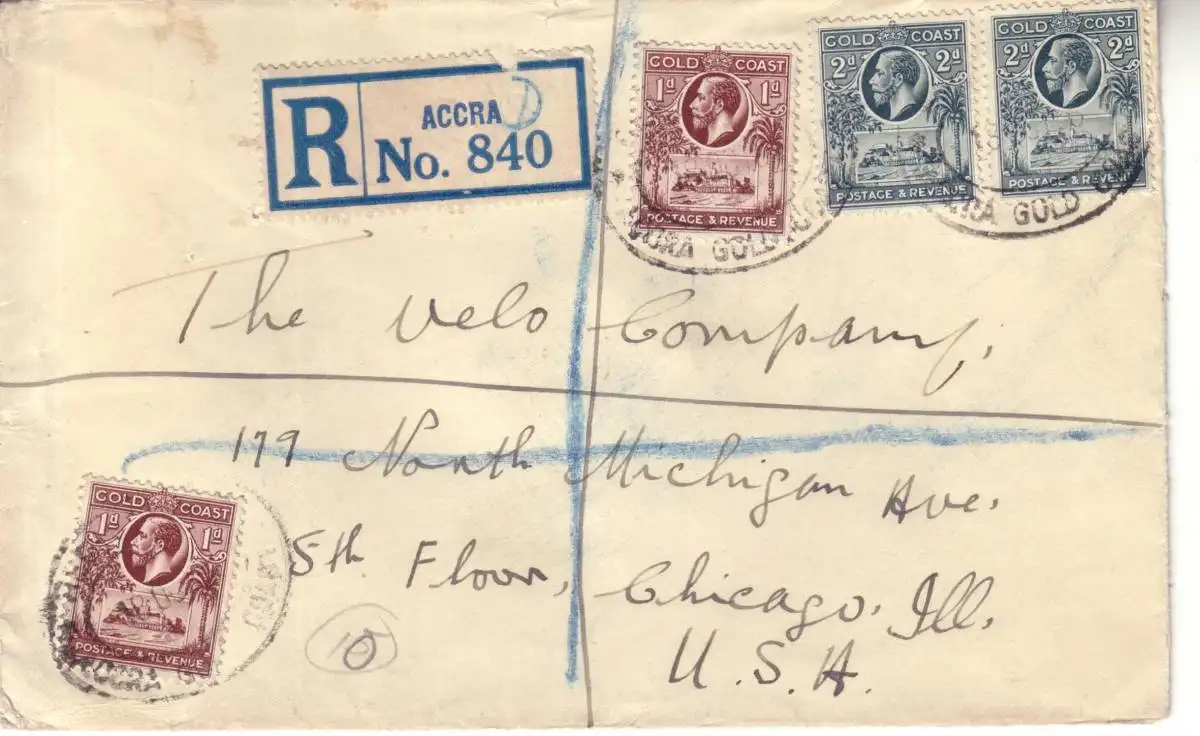 R
ACCRA
No. 840
GOLD COAST
1d 1d
POSTAGE & REVENUE
GOLD COAST
2d 2d
POSTAGE & REVENUE
GOLD COAST
2d 2d
POSTAGE & REVENUE
ACCRA GOLD
The Velo Company,
179 North Michigan Ave.
5th Floor, Chicago. Ill.
U.S.A.
GOLD COAST
1d 1d
POSTAGE & REVENUE
ACCRA
10